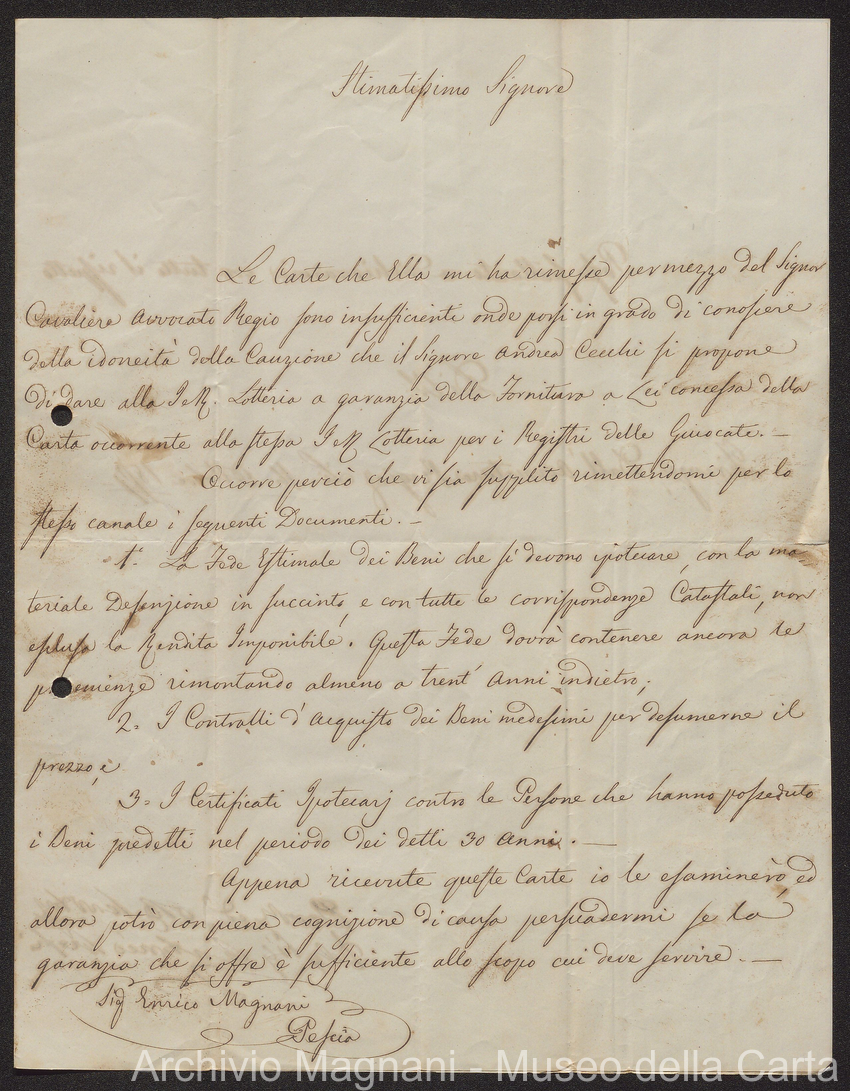 Stimatissimo Signore
Le Carte che Ella mi ha rimesse per mezzo del Signor
Cavaliere Avvocato Regio sono insufficienti onde porsi in grado di conoscere
della idoneità della Cauzione che il Signore Andrea Cecchi si propone
di dare alla I e R. Lotteria a garanzia della Fornitura a Lei concessa della
Carta occorrente alla stessa I e R Lotteria per i Registri delle Giuocate. —
Occorre perciò che vi sia supplito rimettendomi per lo
stesso canale i seguenti Documenti. —
1.° La Fede Estimale dei Beni che si devono ipotecare, con la ma-
teriale Descrizione in succinto, e con tutte le corrispondenze Catastali, non
esclusa la Rendita Imponibile. Questa Fede dovrà contenere ancora le
provenienze rimontando almeno a trent' Anni indietro;
2.° I Contratti d'Acquisto dei Beni medesimi per desumerne il
prezzo, e
3.° I Certificati Ipotecarj contro le Persone che hanno posseduto
i Beni predetti nel periodo dei detti 30 Anni. —
Appena ricevute queste Carte io le esaminerò, ed
allora potrò con piena cognizione di causa persuadermi se la
garanzia che si offre è sufficiente allo scopo cui deve servire. —
Sig Enrico Magnani
Pescia
Archivio Magnani - Museo della Carta